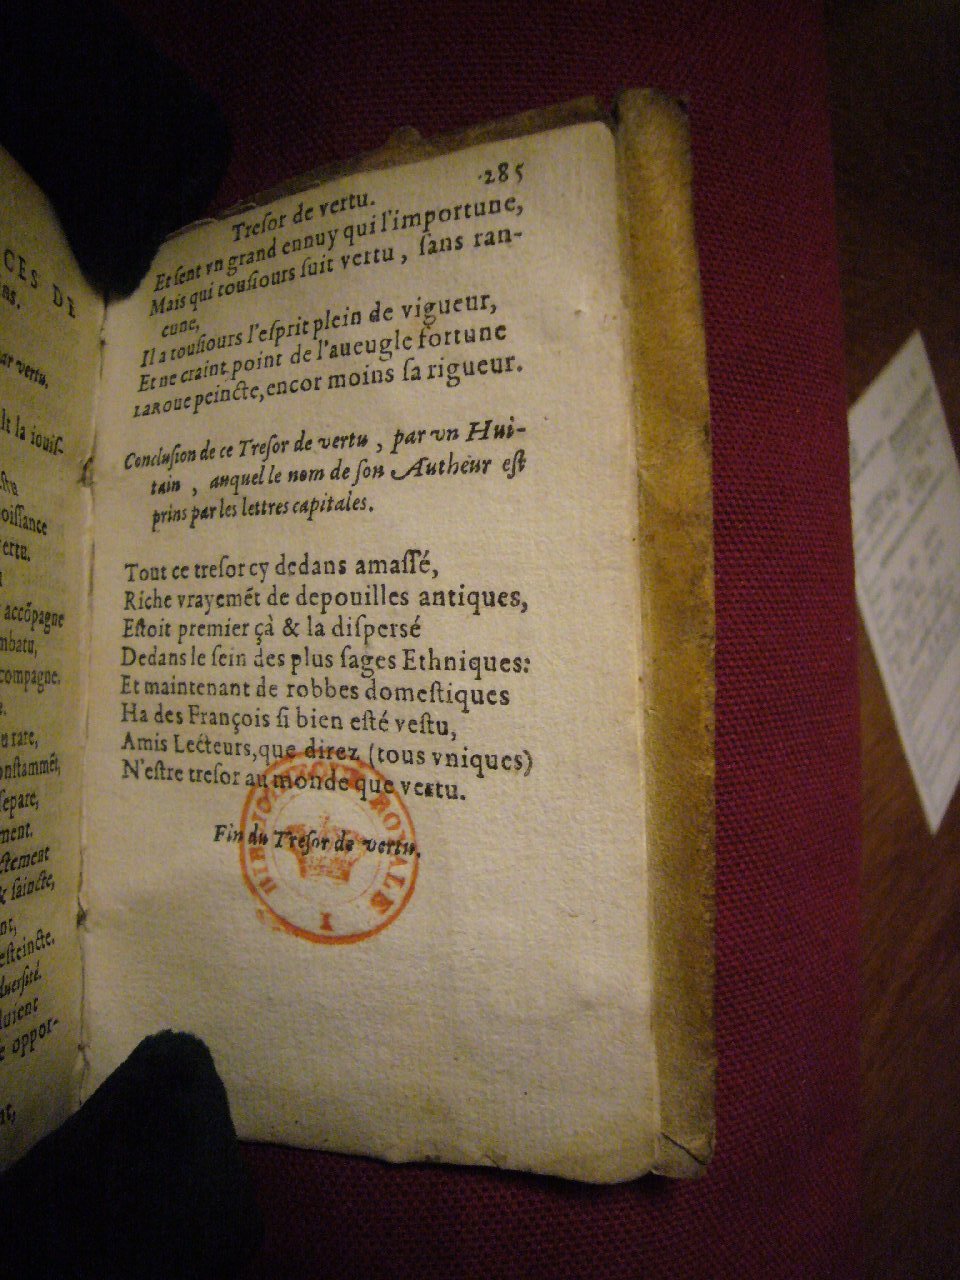 CES DE
ns.
ar vertu.
lt la iouiſ-
ſtru
oiſſance
ertu.
accõpagne
mbatu,
compagne.
e.
u rare,
onſtammẽt,
ſepare,
ment.
ctement
& ſaincte,
nt,
eſteincte.
duerſité.
luient
e oppor-
nt,
Treſor de vertu. 285
Et ſent vn grand ennuy qui l'importune,
Mais qui touſiours ſuit vertu, ſans ran-
cune,
Il a touſiours l'eſprit plein de vigueur,
Et ne craint point de l'aueugle fortune
LA ROue peincte, encor moins ſa rigueur.
Concluſion de ce Treſor de vertu, par vn Hui-
tain, auquel le nom de ſon Autheur eſt
prins par les lettres capitales.
Tout ce treſor cy dedans amaſſé,
Riche vrayemẽt de depouilles antiques,
Eſtoit premier çà & la diſpersé
Dedans le ſein des plus ſages Ethniques:
Et maintenant de robbes domeſtiques
Ha des François ſi bien eſté veſtu,
Amis Lecteurs, que direz (tous vniques)
N'eſtre treſor au monde que vertu.
Fin du Treſor de vertu.
BIBLIOTHECAE ROYALE
I